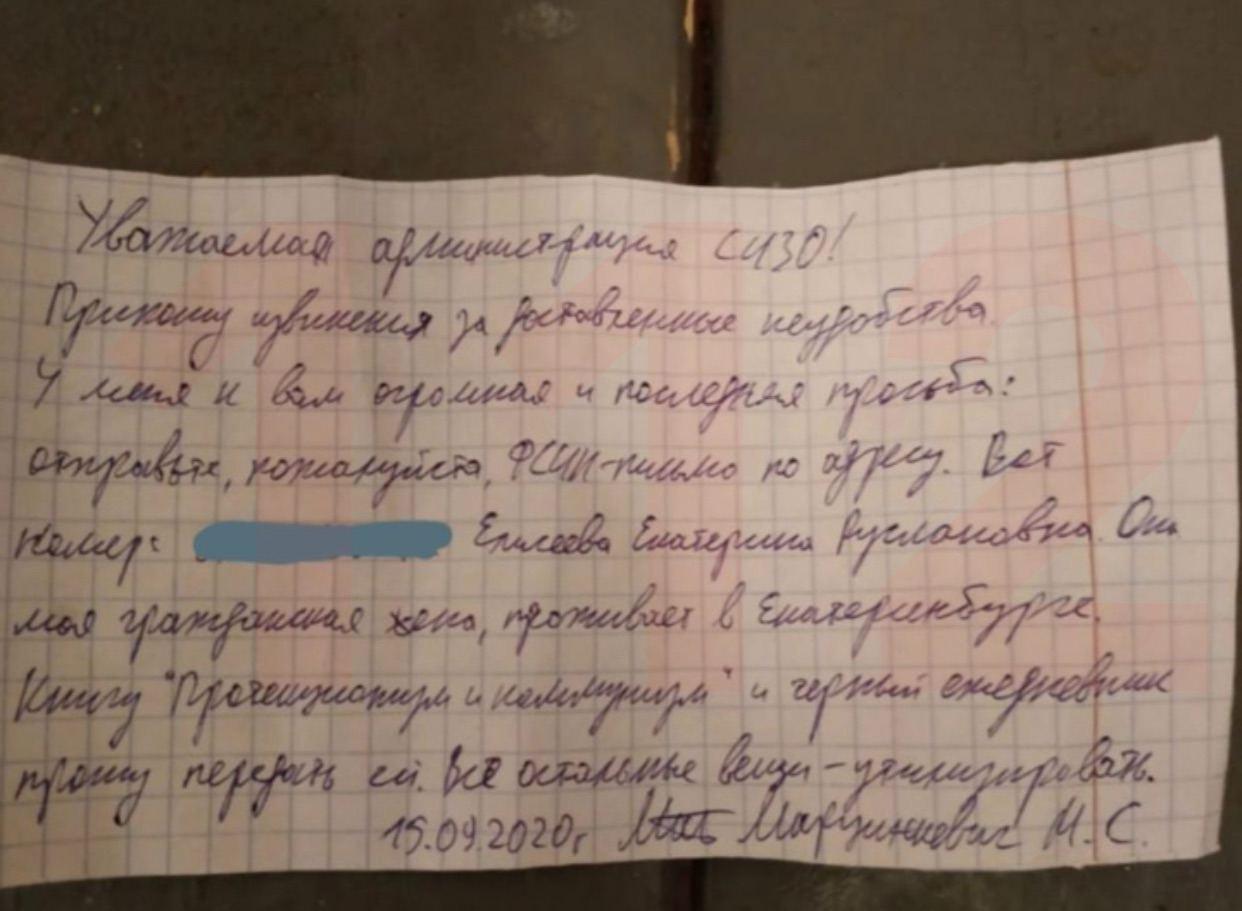 Уважаемая администрация СИЗО!
Приношу извинения за доставленные неудобства.
У меня к вам огромная и последняя просьба:
отправьте, пожалуйста, ФСИН-письмо по адресу. Вот
номер: Елисеева Екатерина Руслановна. Она
моя гражданская жена, проживает в Екатеринбурге.
Книгу "Протекционизм и коммунизм" и черный ежедневник
прошу передать ей. Всё остальные вещи - утилизировать.
15.09.2020г Марцинкевич М.С.